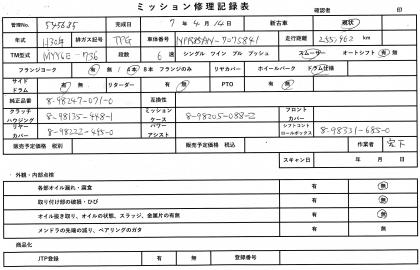 ミッション修理記録表
確認者 印
管理No. 545685 完成日 7 年 4 月 14 日 新古車 現状
年式 H30/4 排ガス記号 TPG 車体番号 NPR85AN-7075841 走行距離 255,462 km
TM型式 MYY6E-736 段数 6 速 シングル ツイン プル プッシュ スムーサー オートシフト 有 無
フランジヨーク 有 無 / 4本 8本 フランジのみ リヤカバー ホイールパーク ドラム仕様
サイドドラム 有 無 リターダー 有 無 PTO 有 無
純正品番 8-98247-071-0 互換性
クラッチハウジング 8-98135-448-1 ミッションケース 8-98205-088-2 フロントカバー
リヤーカバー 8-98222-495-0 パワーアシスト シフトコントロールボックス 8-98331-685-0
販売予定価格 税別 販売予定価格 税込 作業者 宮下
スキャン日 年 月 日
・外観・内部点検
各部オイル漏れ・腐食 有 無
取り付け部の破損・ひび 有 無
オイル抜き取り、オイルの状態、スラッジ、金属片の有無 有 無
メンドラの先端の減り、ベアリングのガタ 有 無
商品化
JTP登録 有 無 登録日 年 月 日